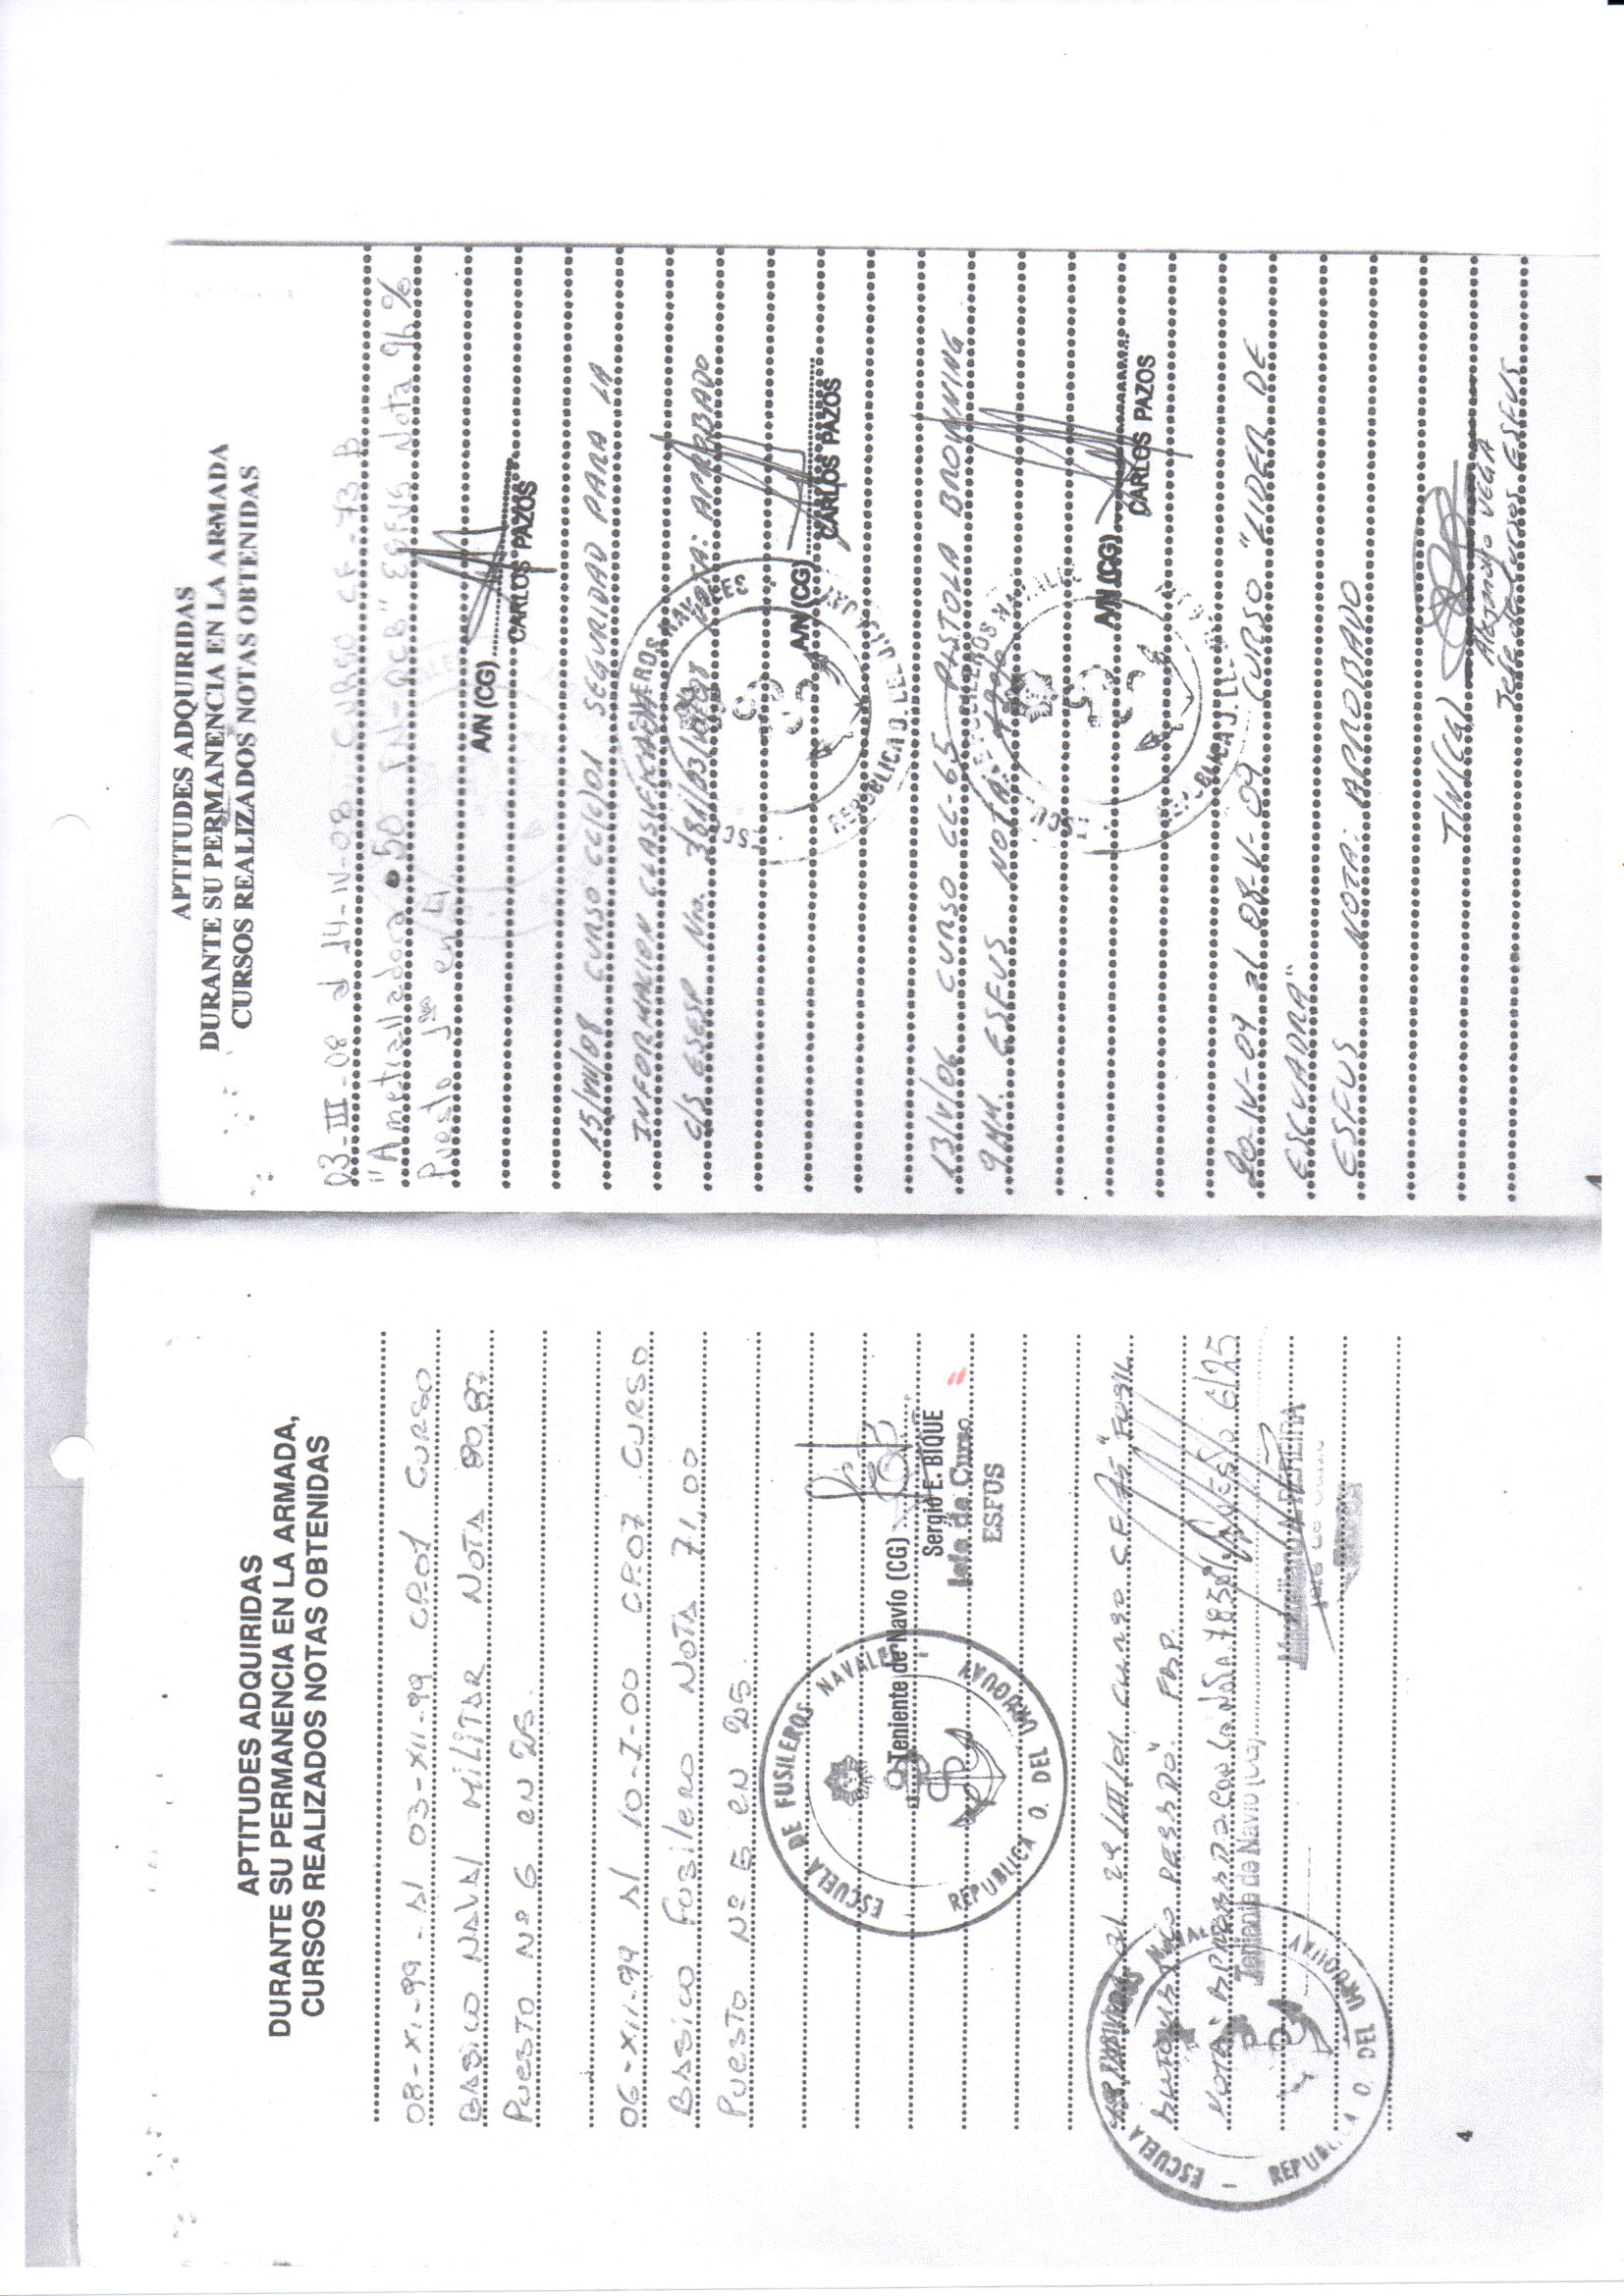 APTITUDES ADQUIRIDAS
DURANTE SU PERMANENCIA EN LA ARMADA,
CURSOS REALIZADOS NOTAS OBTENIDAS
08-XI-99 - Al 03-XII-99 CP.01 CURSO
BASICO NAVAL MILITAR NOTA 80,87
PUESTO Nº 6 EN 25.
06-XII-99 Al 10-I-00 CP.07 CURSO
BASICO FUSILERO NOTA 71,00
PUESTO Nº 5 EN 25.
ESCUELA DE FUSILEROS NAVALES
REPUBLICA O. DEL URUGUAY
Teniente de Navío (CG)
Sergio E. BIQUE
Jefe de Curso
ESFUS
al 29/III/01 CURSO CF/75 "FUSIL
AUTOMATICO PESADO". FAP.
NOTA: APROBADO CON LA NOTA 6/25
Teniente de Navío (CG)
Maximiliano A. PEREIRA
ESCUELA DE FUSILEROS NAVALES
REPUBLICA O. DEL URUGUAY
4
APTITUDES ADQUIRIDAS
DURANTE SU PERMANENCIA EN LA ARMADA
CURSOS REALIZADOS NOTAS OBTENIDAS
03-III-08 al 14-IV-08 CURSO CF-73 B
"Ametralladora .50 FN-QCB" ESFUS Nota 96 %
Puesto 1ro en 4
A/N (CG)
CARLOS PAZOS
15/VII/08 CURSO CC(C)01 SEGURIDAD PARA LA
INFORMACION CLASIFICADA
C/S ESESP Nro. NOTA: APROBADO
A/N (CG)
CARLOS PAZOS
ESCUELA DE FUSILEROS NAVALES
REPUBLICA O. DEL URUGUAY
13/V/06 CURSO CC-65 PISTOLA BROWNING
9MM. ESFUS NOTA:
A/N (CG)
CARLOS PAZOS
ESCUELA DE FUSILEROS NAVALES
REPUBLICA O. DEL URUGUAY
20-IV-09 al 08-V-09 CURSO "LIDER DE
ESCUADRA"
ESFUS NOTA: APROBADO
T/N (CG)
Alejandro VEGA
Jefe de Cursos ESFUS